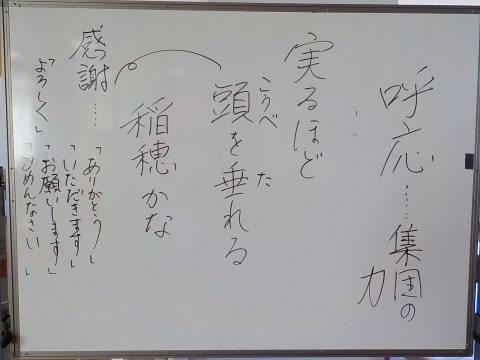 呼応……集団の力
実るほど
頭を垂れる
こうべ
た
稲穂かな
感謝……
「ありがとう」
「いただきます」
「お願いします」
「ごめんなさい」
「よろしく」